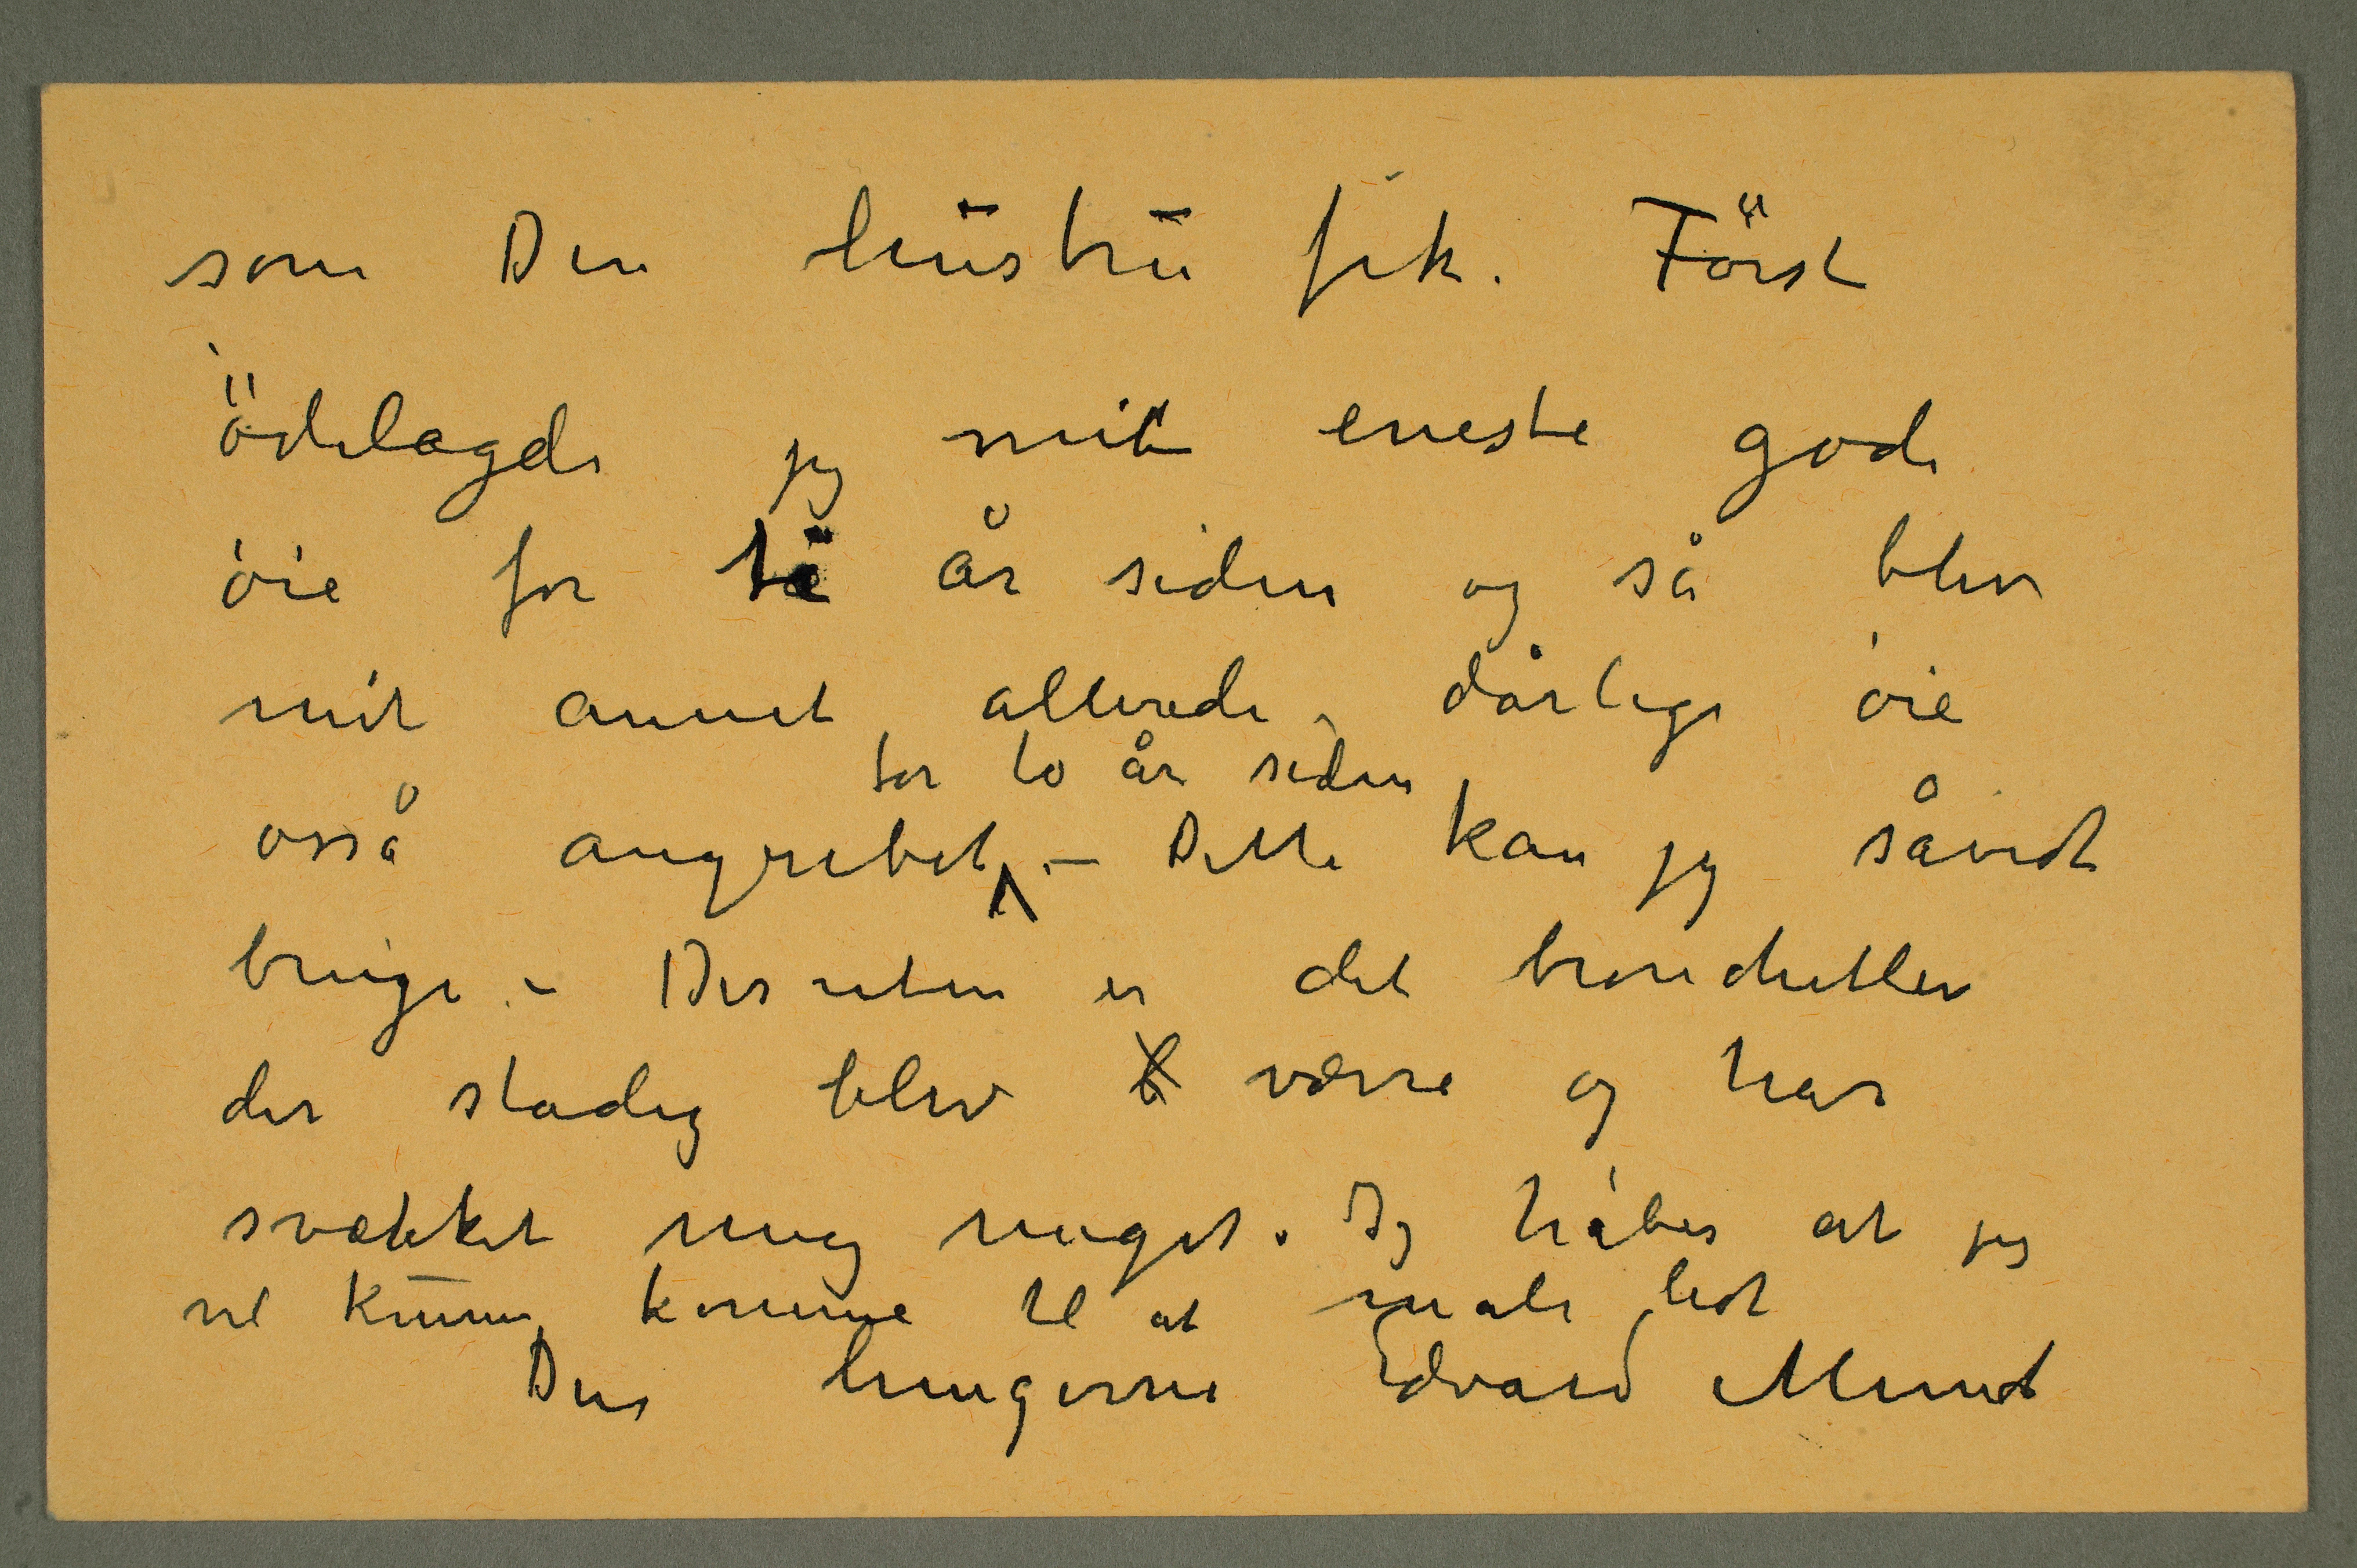 som Din hustru fik. Först
ödelagde jeg mit eneste gode
öie for ti år siden og så blev
mit annet allerede dårlige öie
osså angrebet for to år siden – Dette kan jeg såvidt
bruge. – Desuten er det bronchitten
der stadig blev værre og har
svækket mig noget. Jeg håber at jeg
vil kunne komme til at male lidt
Din hengivne Edvard Munch